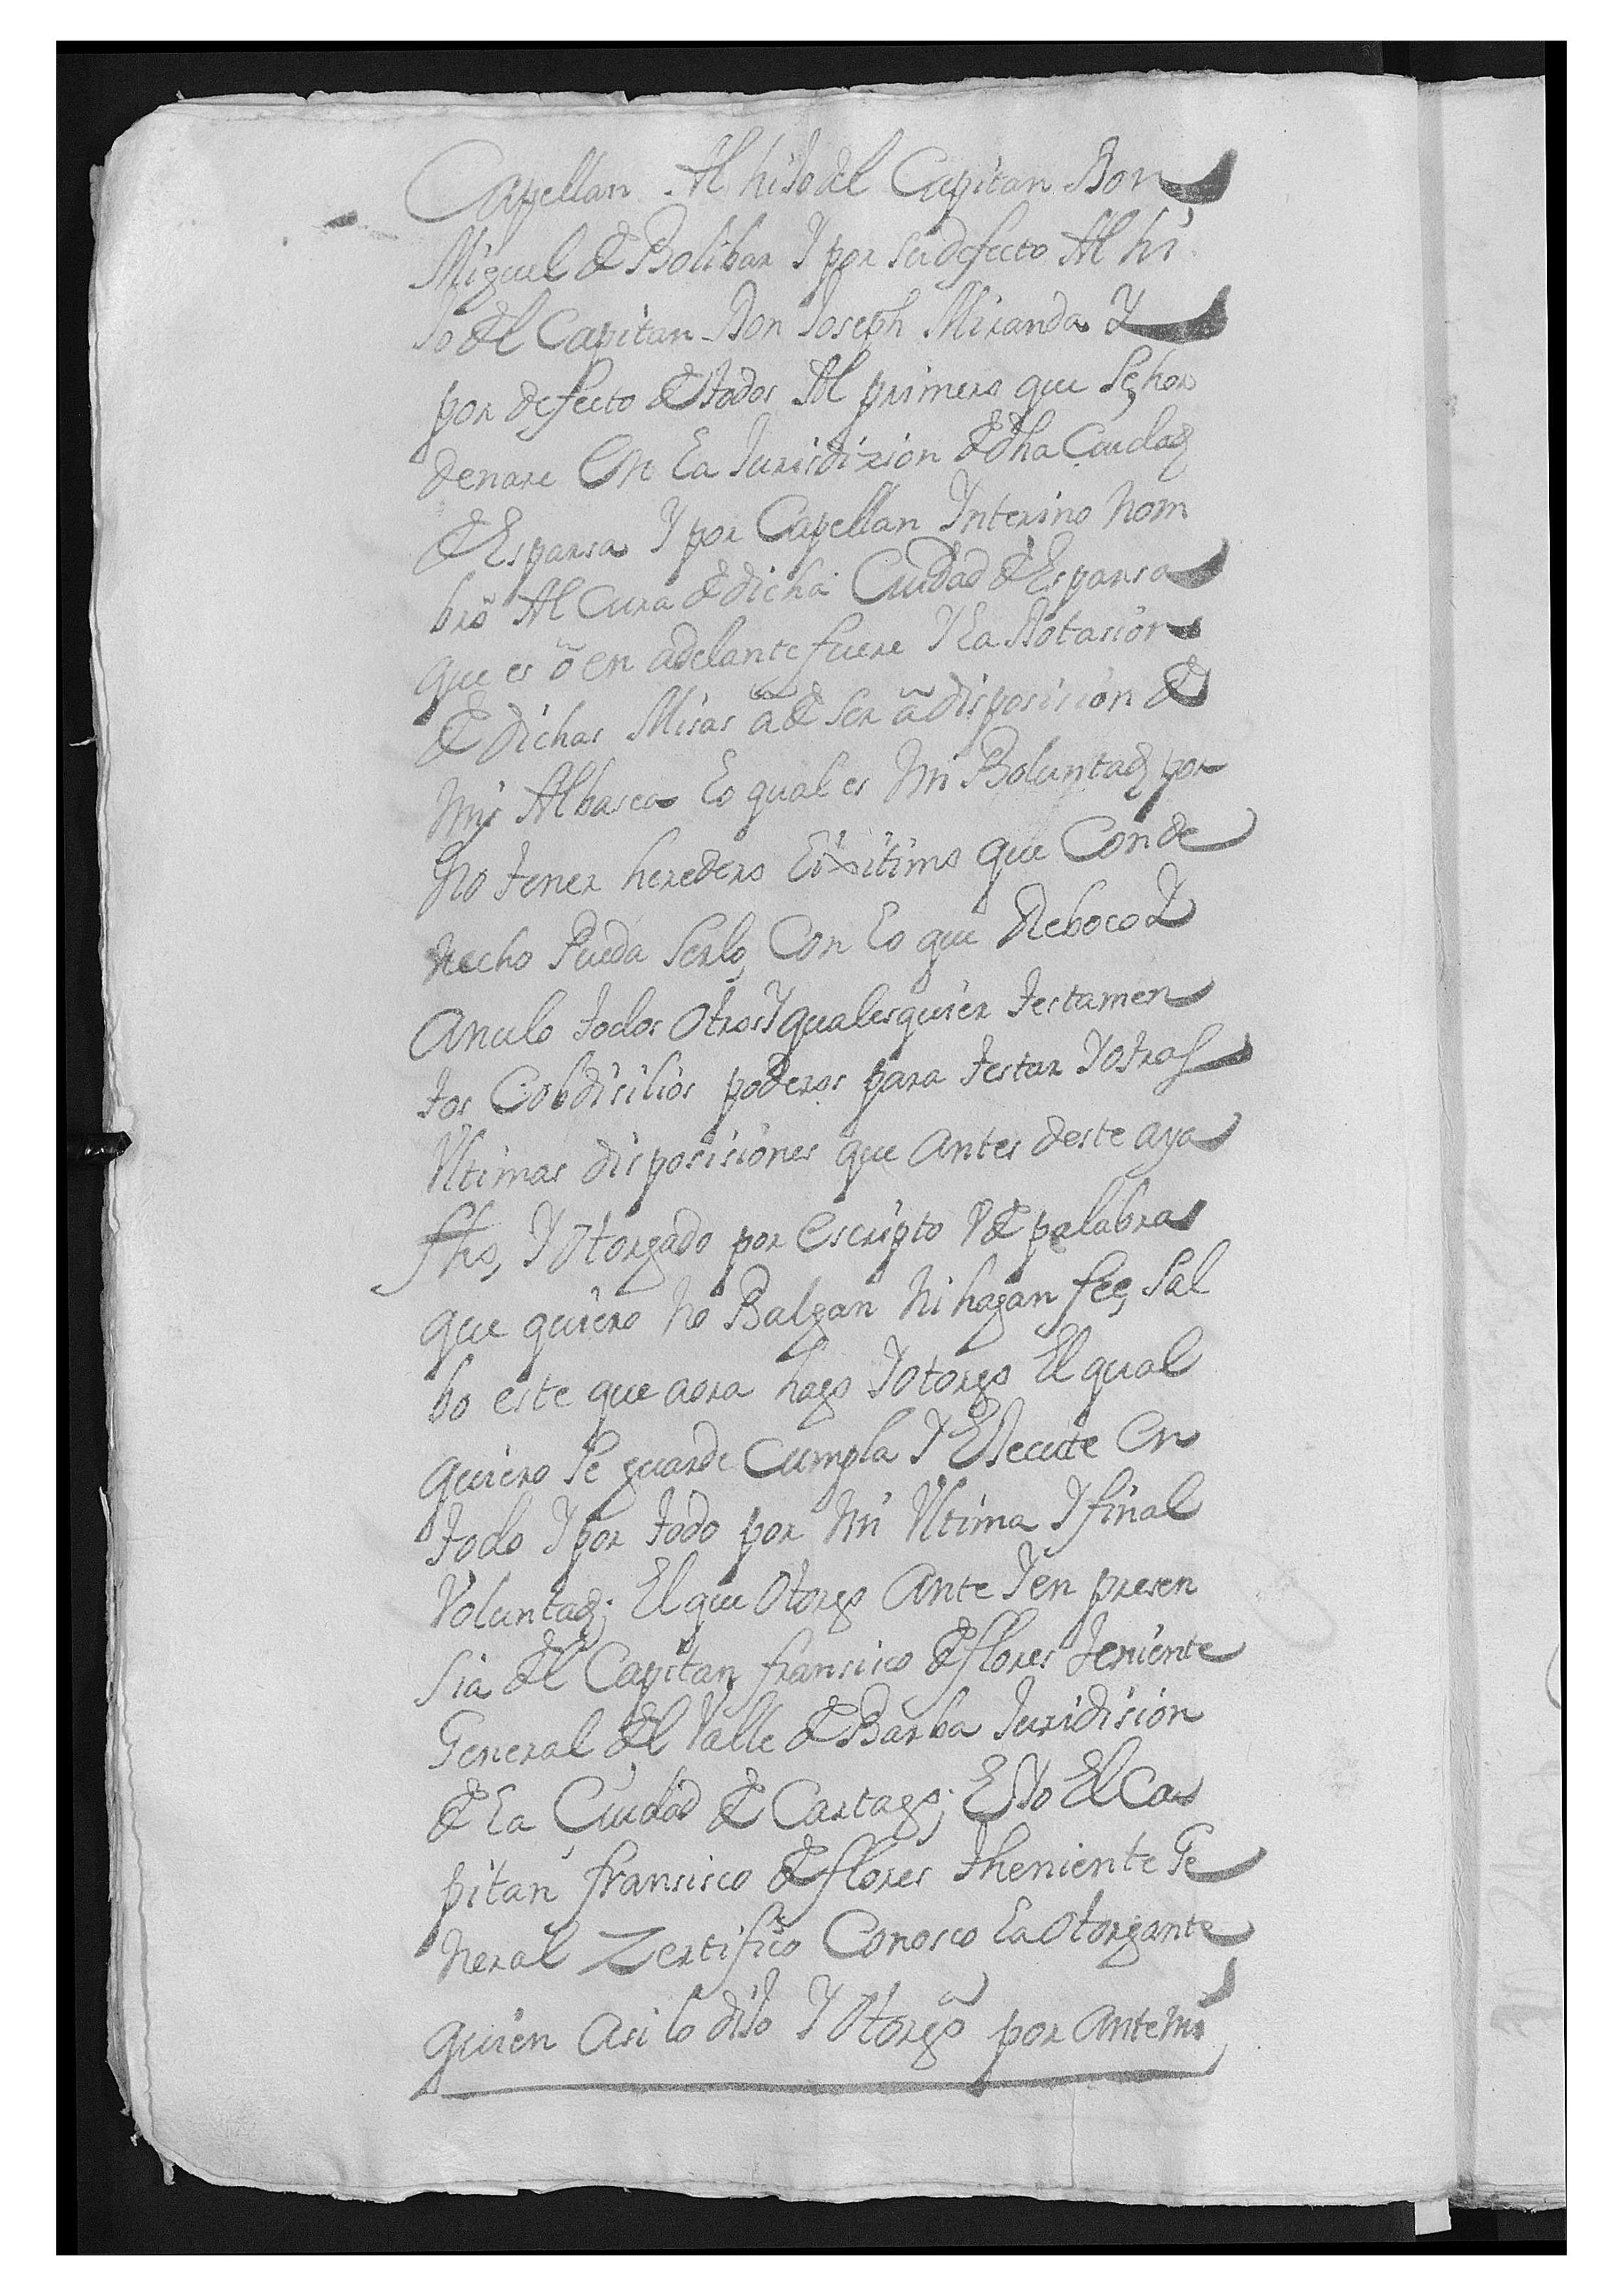 Capellan Al hiJo del Capitan Don
Miguel de Bolibar Y por su defecto Al hi
Jo del Capitan Don Joseph Miranda Y
por defecto de todos Al primero que Se hor
denare En La Jurisdizion de dha Ciudad
de Esparsa Y por Capellan Ynterino nom
bro Al Cura de dicha Ciudad de Esparsa
que es ô en adelante fuere Y La Dotasion
de dichas Misas â de Ser â disposision de
mis Albasea Lo qual es Mi Boluntad por
no tener heredero Lixitimo que Con de
recho Pueda Serlo, Con Lo que Reboco Y
Anulo todos Otros Y qualesquier testamen
tos Cobdisilios poderes para testar Y otras
Vltimas disposisiones que Antes deste aya
fho, Y Otorgado por Escripto Y de palabra
que quiero no Balgan Ni hagan fee, Sal
bo este que aora hago Y otorgo El qual
quiero Se guarde Cumpla Y EJecute En
todo Y por todo por Mi Vltima Y final
Voluntad; El que Otorgo Ante Y en presen
sia del Capitan fransisco de flores teniente
General del Valle de Barba Juridision
de La Ciudad de Cartago; E Yo El Ca
pitan fransisco de flores theniente Ge
neral Zertifico Conosco La Otorgante
quien Asi lo diJo Y Otorgô por Ante mi